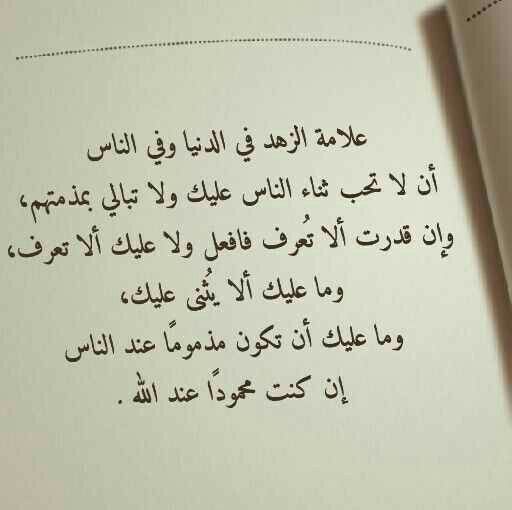 علامة الزهد في الدنيا وفي الناس
أن لا تحب ثناء الناس عليك ولا تبالي بمذمتهم،
وإن قدرت ألا تُعرف فافعل ولا عليك ألا تعرف،
وما عليك ألا يُثنى عليك،
وما عليك أن تكون مذمومًا عند الناس
إن كنت محمودًا عند الله .